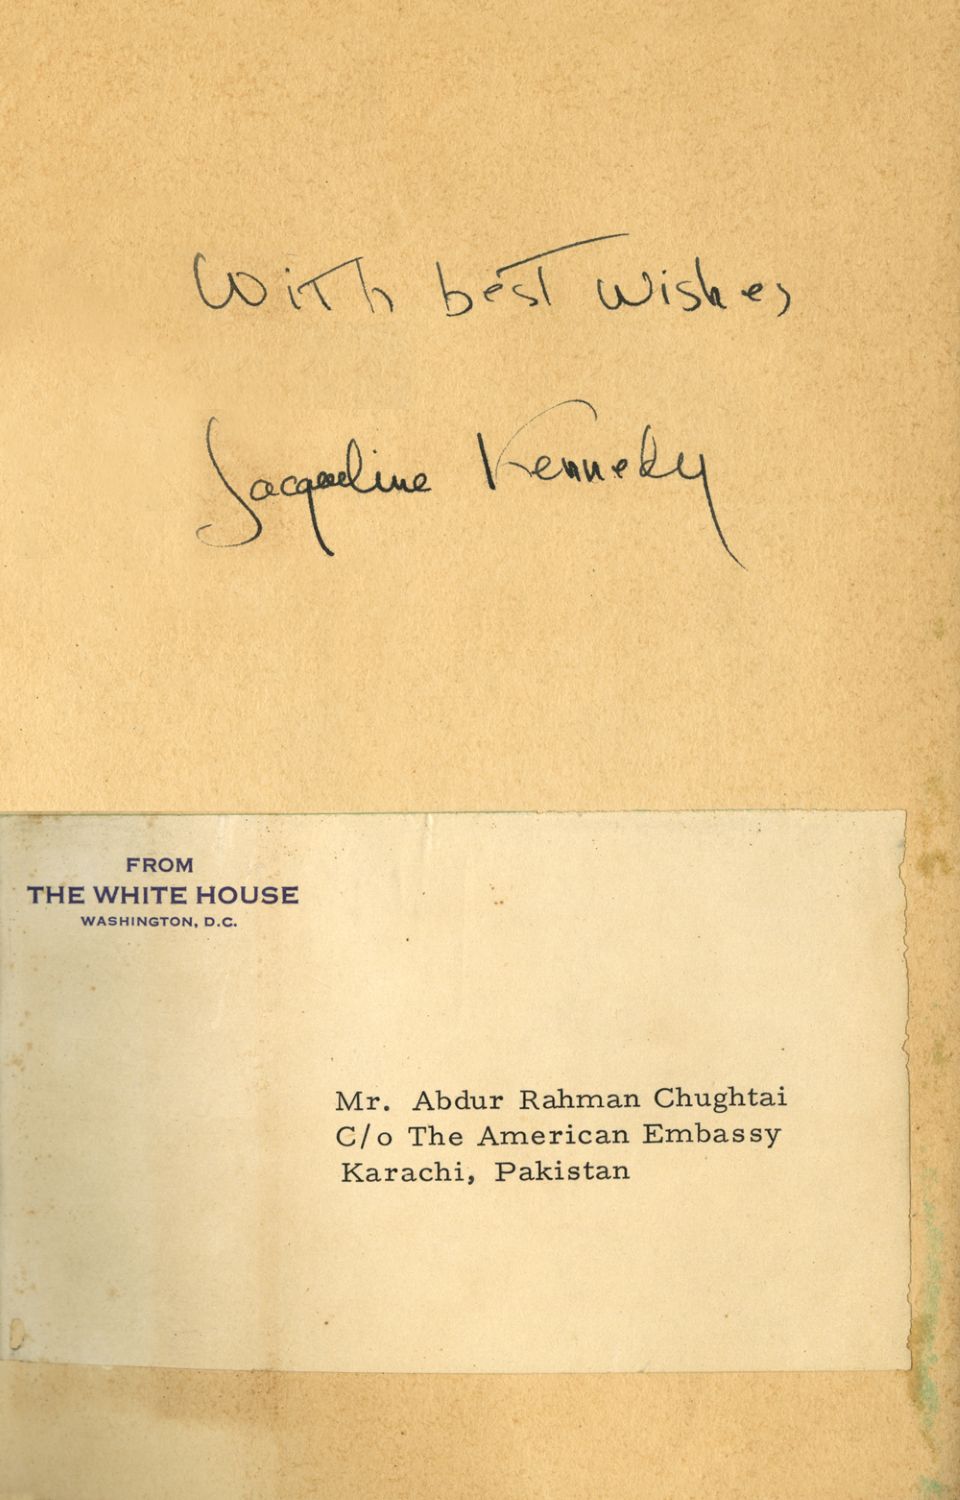 With best wishes
Jacqueline Kennedy
FROM
THE WHITE HOUSE
WASHINGTON, D.C.
Mr. Abdur Rahman Chughtai
C/o The American Embassy
Karachi, Pakistan